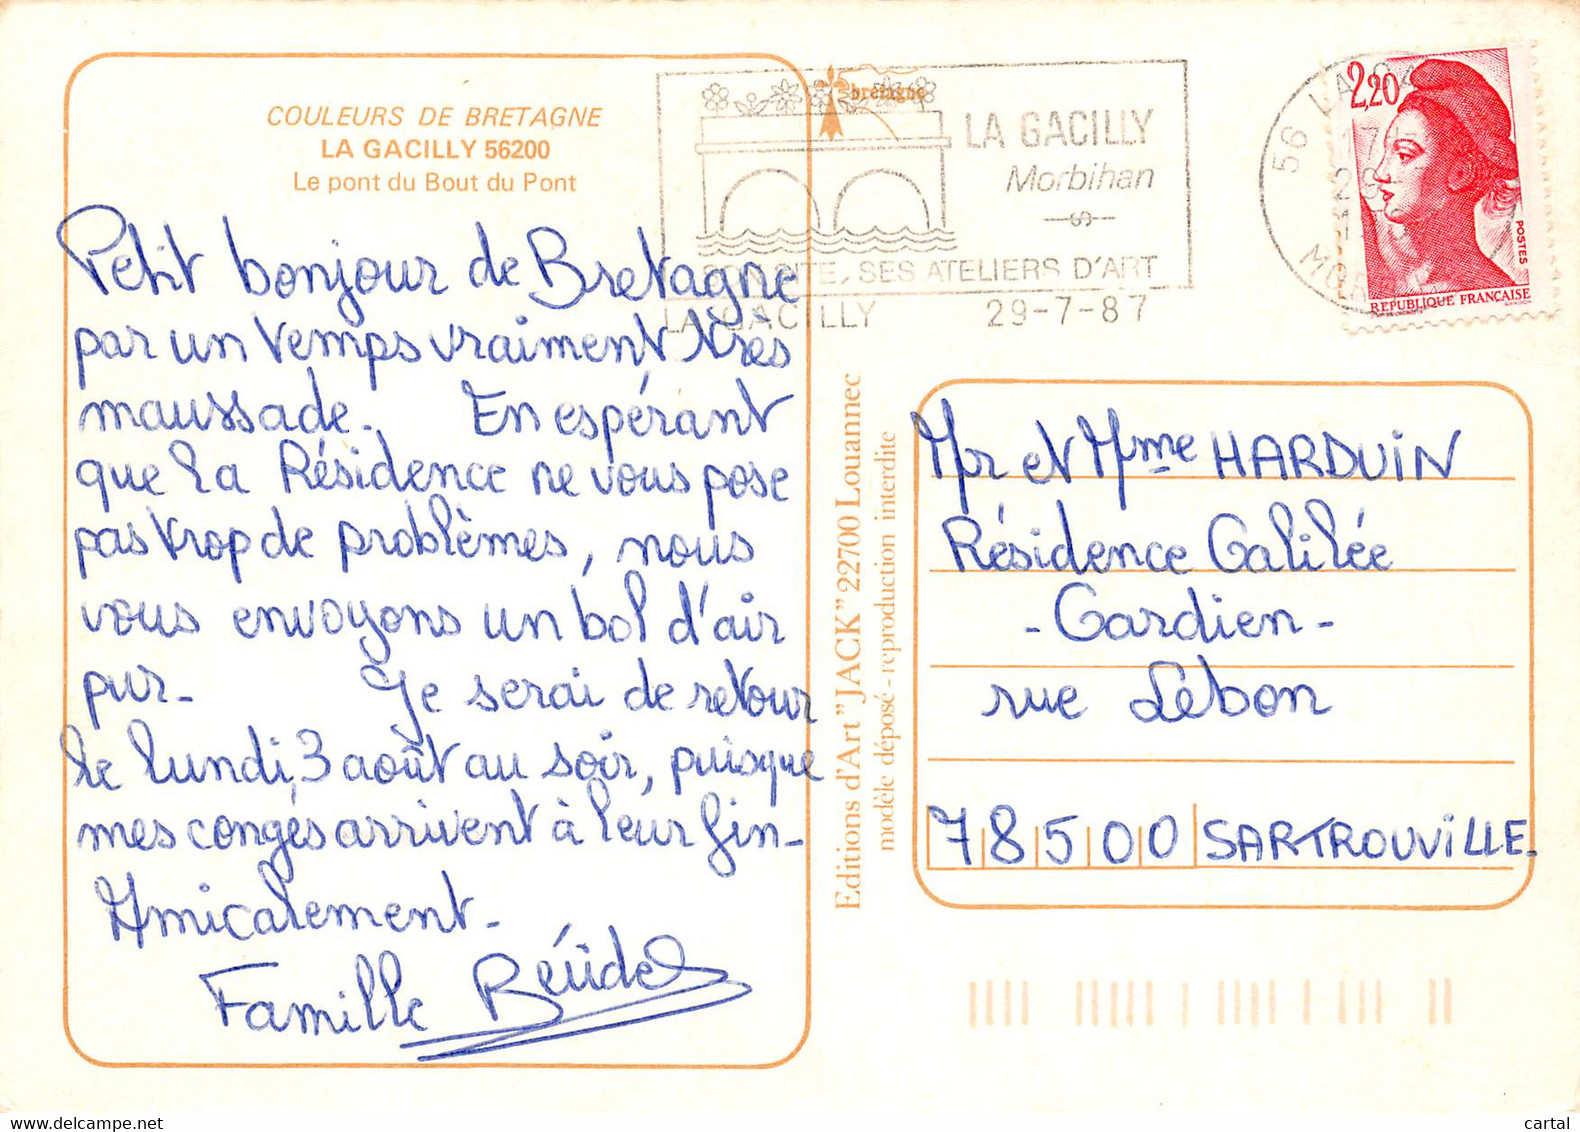 COULEURS DE BRETAGNE
LA GACILLY 56200
Le pont du Bout du Pont
Petit bonjour de Bretagne
par un temps vraiment très
maussade. En espérant
que la Résidence ne vous pose
pas trop de problèmes, nous
vous envoyons un bol d'air
pur. Je serai de retour
le lundi 3 août au soir, puisque
mes congés arrivent à leur fin.
Amicalement.
Famille
bretagne
LA GACILLY
Morbihan
SITE, SES ATELIERS D'ART
LA GACILLY 29-7-87
56 LA GA
2,20
POSTES
REPUBLIQUE FRANÇAISE
Editions d'Art "JACK" 22700 Louannec
modèle déposé - reproduction interdite
Mr et Mme HARDUIN
Résidence Galilée
- Gardien -
rue Lebon
78500 SARTROUVILLE.
delcampe.net
cartal